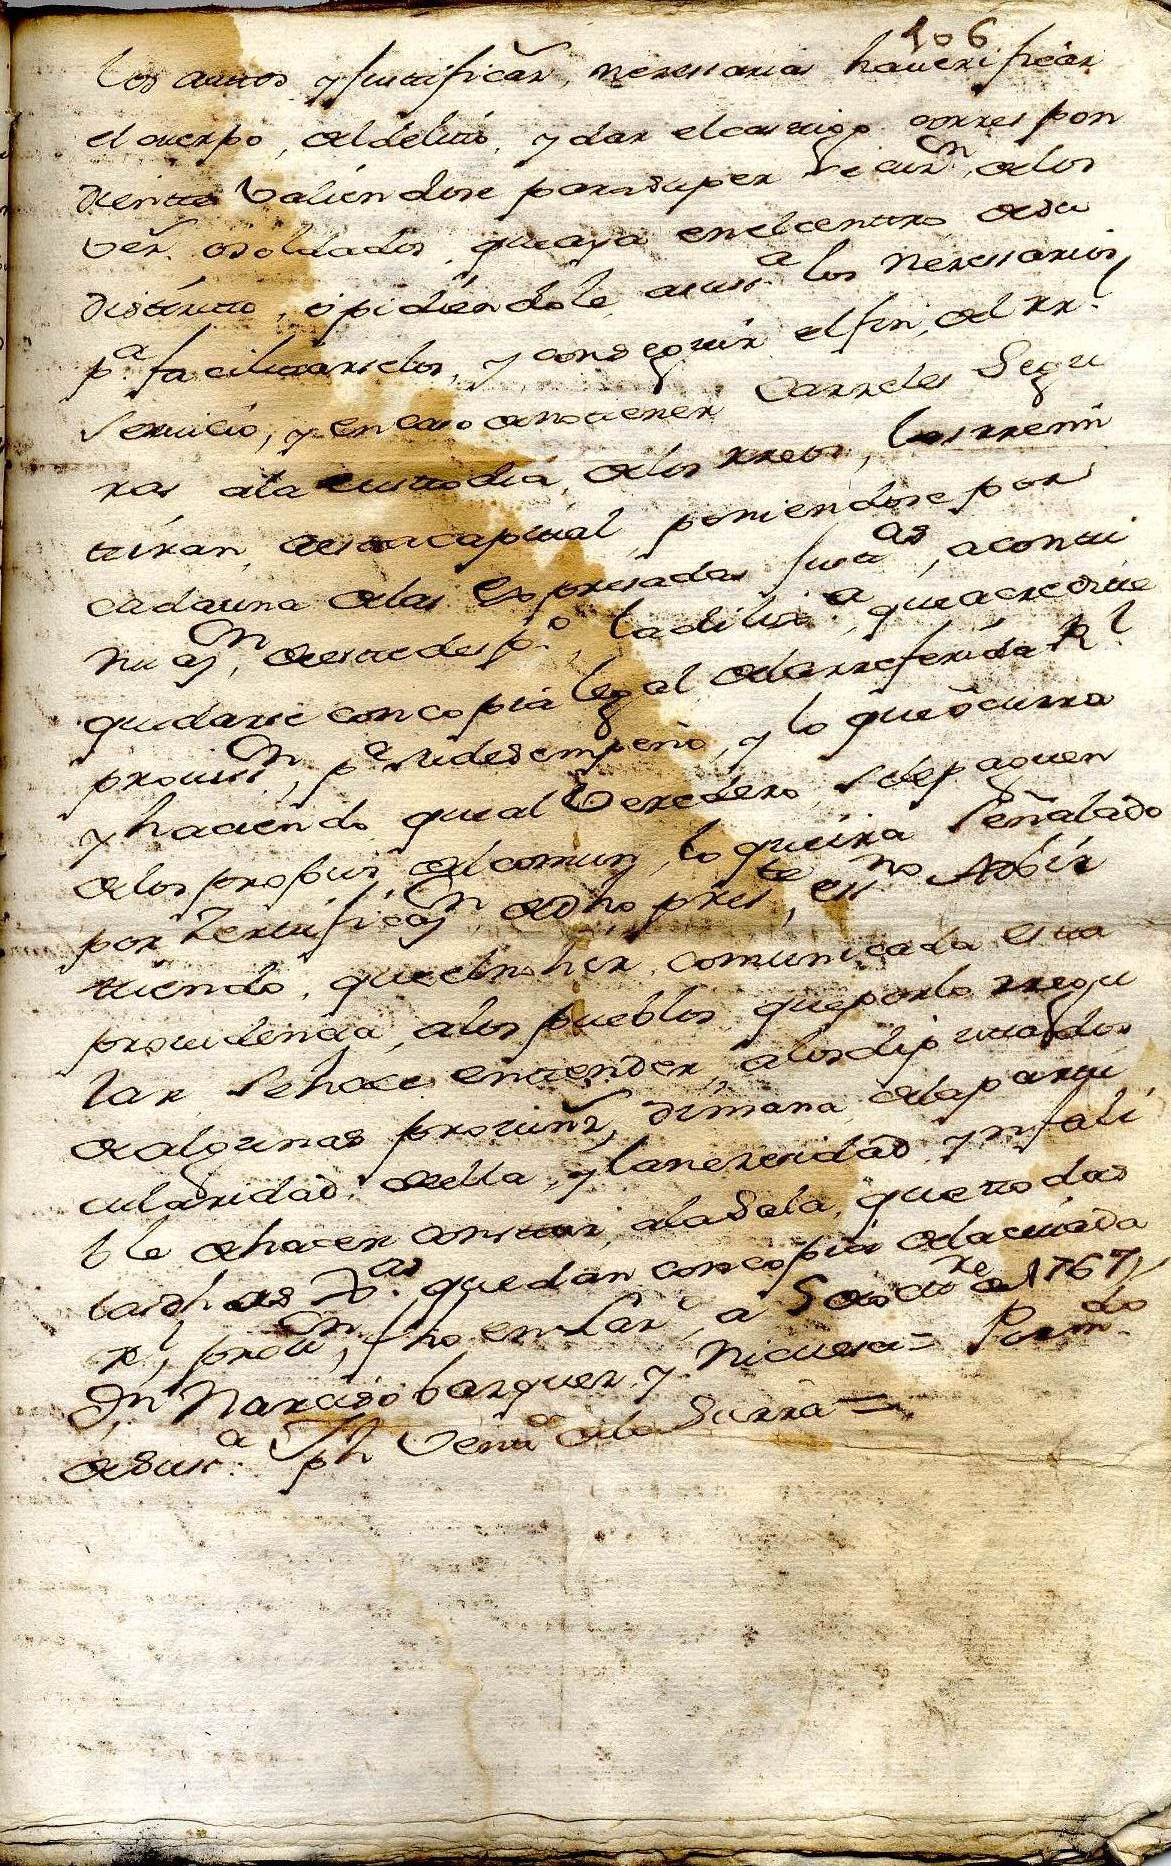 106
los autos y justificaⁿ. neresarias haverificar
el cuerpo, del delito, y dar el castigo correspon
diente Valiendose para su persecuz.ⁿ, de los
Vez.ˢ o soldados, que aya en el centro de su
distrito, o pidiendole a su s.ª los neresarios
p.ª facilitarselos, y conseguir el fin, del rr.ˡ
Servicio, y en caso de no tener Carzeles Segu
ras a la custodia, de los rreos, los rremi
tiran, a esta capital, poniendose por
cada una de las Expresadas just.ᵃˢ, a conti
nuaz.ⁿ, de este desp.º, la dilix.ª, que acredite
quedarse con copia legal de la rreferida R.ˡ
provis.ⁿ, p.ª su desempeño, y lo que ocurra
y haciendo que al Veredero, se le paguen
de los propios, del comun, lo que ira Señalado
por Zertificaz.ⁿ, de dho pres.ᵗᵉ, ess.ⁿᵒ Adbir
tiendo, que el no her. comunicada esta
providencia, a los pueblos, que por lo rregu
lar, Se hace entender, a los diputados
de algunas provinz.ˢ, dimana, de la parti
cularidad, de ella, y la neresidad, ynfali
ble de hacer constar, a la Sala, que todas
las dhas J.ᵃˢ quedan con copia de la citada
r.ˡ, prov.ⁿ, fho en Lar.º, a 5 de oct.ʳᵉ de 1767
Dn Narciso barquer y Nicuesa = Por m.ᵈᵒ
de su s.ª Jph Vent.ª de la Sierra =